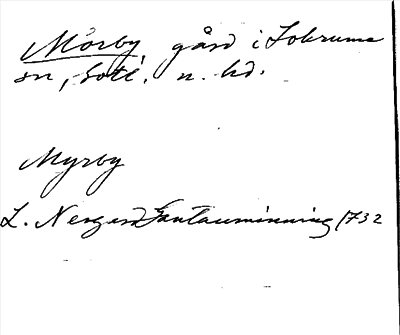 Mörby, gård i Lokrume
sn, Gotl. n. hd.
Myrby
L. Nergard Gantauminning 1732